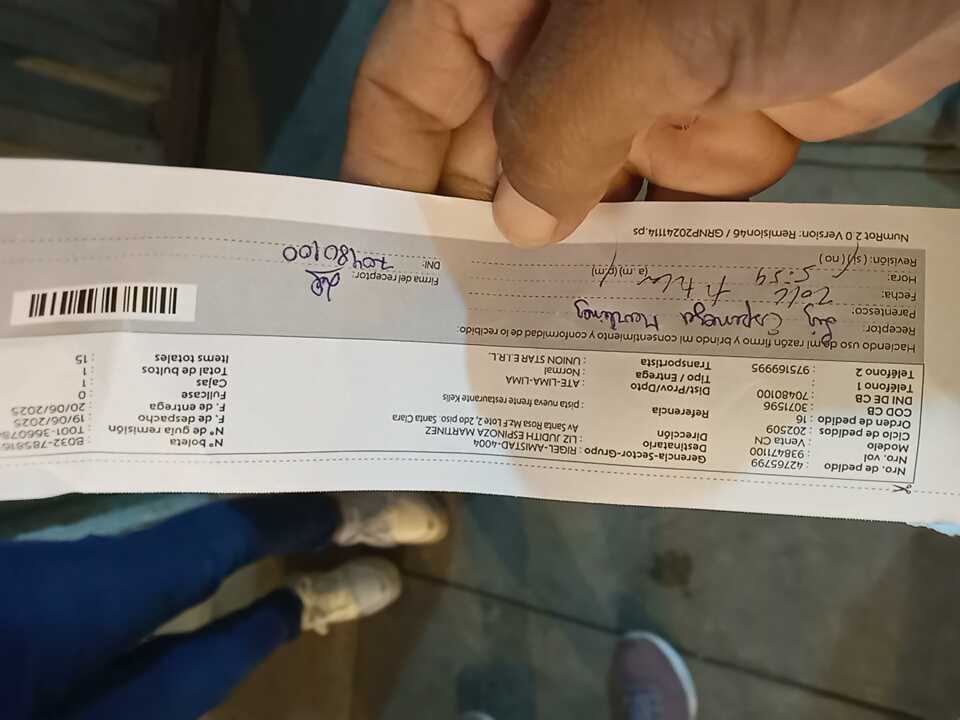 Nro. de pedido : 42765799
Nro. vol. : 938471100
Modelo : Venta CN
Ciclo de pedidos : 202509
Orden de pedido : 16
COD CB : 3071596
DNI DE CB : 70480100
Teléfono 1 :
Teléfono 2 : 975169995
Gerencia-Sector-Grupo : RIGEL-AMISTAD-4004
Destinatario : LIZ JUDITH ESPINOZA MARTINEZ
Dirección : Av Santa Rosa Mz F Lote 2, 2do piso. Santa Clara
Referencia : pista nueva frente restaurante Kelis
Dist/Prov/Dpto : ATE-LIMA-LIMA
Tipo / Entrega : Normal
Transportista : UNION STAR E.I.R.L.
Nº boleta : B032-785816
Nº de guía de remisión : T001-366078
F. de despacho : 19/06/2025
F. de entrega : 20/06/2025
Fullcase : 0
Cajas : 1
Total de bultos : 1
Items totales : 15
Haciendo uso de mi razón firmo y brindo mi consentimiento y conformidad de lo recibido:
Receptor:
Parentesco:
Fecha:
Hora: 5:54 (a.m)(p.m)
Revisión: (si) (no)
Firma del receptor:
DNI: 70480100
NumRot 2.0 Version: Remision46 / GRNP20241114.ps